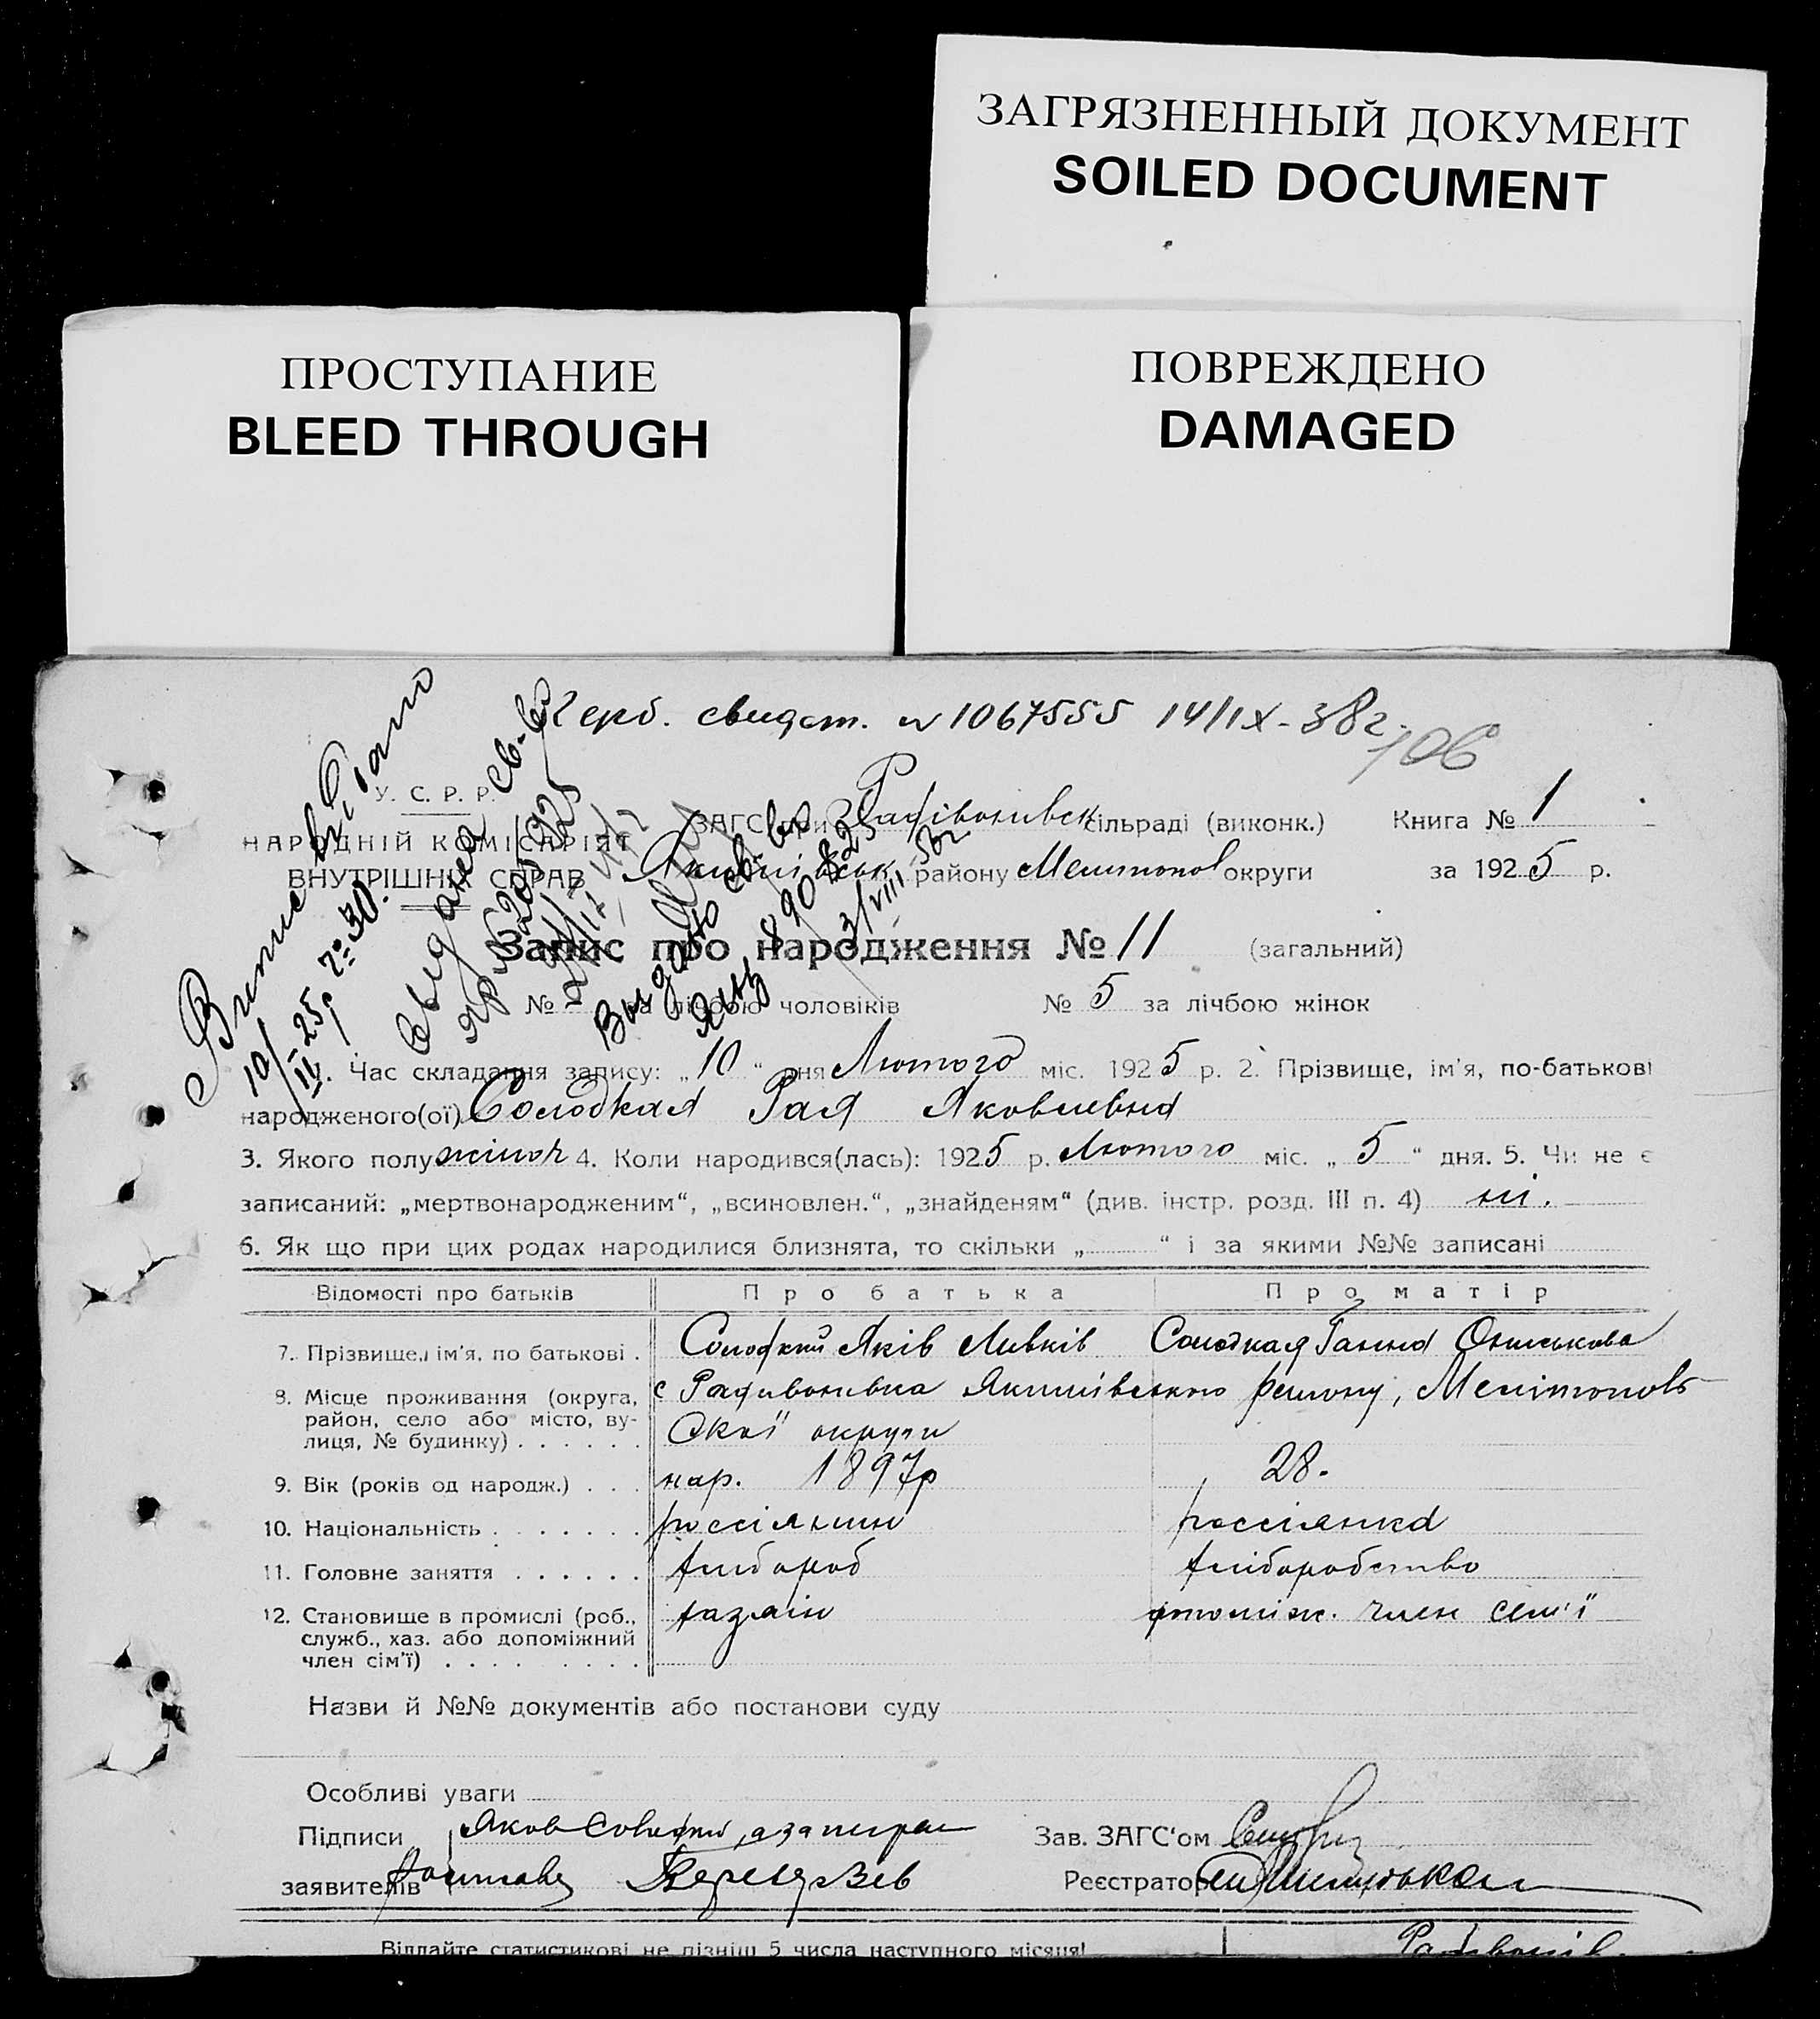 ЗАГРЯЗНЕННЫЙ ДОКУМЕНТ
SOILED DOCUMENT
ПРОСТУПАНИЕ
BLEED THROUGH
ПОВРЕЖДЕНО
DAMAGED
герб. свидет. № 1067555 14/IX-38г.
106
У. С. Р. Р.
НАРОДНІЙ КОМІСАРІЯТ
ВНУТРІШНІХ СПРАВ
ЗАГС при Радівонівськ сільраді (виконк.) Книга № 1
Якимівськ району Мелитопол округи за 1925 р.
Запис про народження № 11 (загальний)
№ - за лічбою чоловіків № 5 за лічбою жінок
1. Час складання запису: „10“ дня Лютого міс. 1925 р. 2. Прізвище, ім'я, по-батькові
народженого(ої) Солодкая Рая Яковлевна
3. Якого полу жіноч 4. Коли народився(лась): 1925 р. Лютого міс. „5“ дня. 5. Чи не є
записаний: „мертвонародженим“, „всиновлен.“, „знайденям“ (див. інстр. розд. III п. 4) ні.
6. Як що при цих родах народилися близнята, то скільки „ “ і за якими №№ записані
Відомості про батьків Про батька Про матір
7. Прізвище, ім'я, по батькові . Солодкий Яків Ливків Солодкая Ганна Ониськова
8. Місце проживання (округа, с Радивонивка Якимівського району, Мелітополь
район, село або місто, ву-
лиця, № будинку) . . . . . . ської округи
9. Вік (років од народж.) . . . нар. 1897р 28.
10. Національність . . . . . . . россіянин россіянка
11. Головне заняття . . . . . . хлібороб хліборобство
12. Становище в промислі (роб., хазяін допоміж. член семі'ї
служб., хаз. або допоміжний
член сім'ї) . . . . . . . .
Назви й №№ документів або постанови суду
Особливі уваги
Підписи Яков Солодкий, а за
заявителів Зав. ЗАГС'ом
Реєстратор
Віддайте статистикові не пізніш 5 числа наступного місяця!